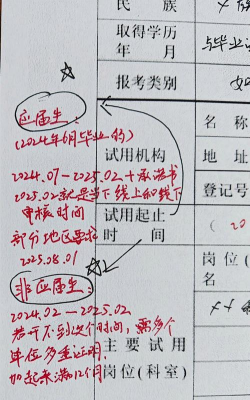 民 族
取得学历
年 月
与毕业
报考类别
应届生:
(2024年6月毕业的)
2024.07-2025.02+承诺书
2025.02就是当下线上和线下
审核时间
部分地区要求
2025.08.01
非应届生:
2024.02—2025.02
若开不到这个时间,需多个
单位多金证明,
加起来满12个月
试用机构
名 称
地 址
登记号
试用起止
时 间
(20
岗位(
名
主要试用
岗位(科室)